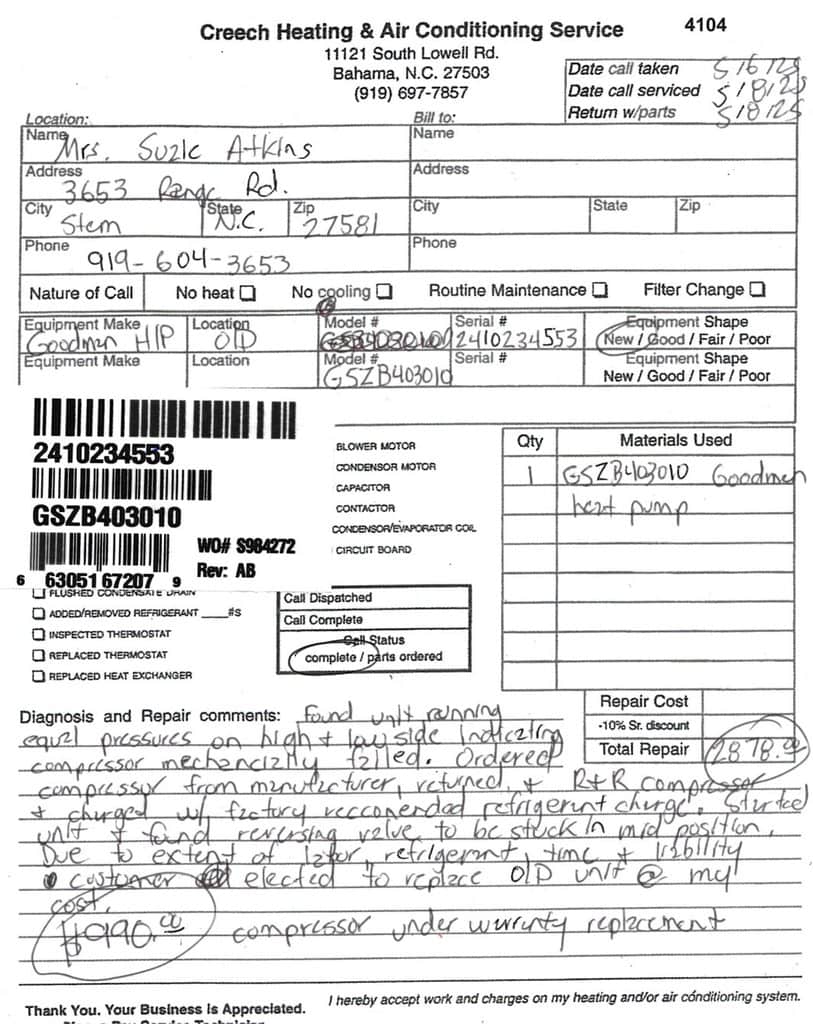 Creech Heating & Air Conditioning Service 4104
11121 South Lowell Rd.
Bahama, N.C. 27503
(919) 697-7857
Date call taken 5/6/25
Date call serviced 5/8/25
Return w/parts 5/8/25
Location: Bill to:
Name Mrs. Suzie Atkins Name
Address 3653 Range Rd. Address
City Stem State N.C. Zip 27581 City State Zip
Phone 919-604-3653 Phone
Nature of Call No heat ☐ No cooling ☐ Routine Maintenance ☐ Filter Change ☐
Equipment Make Goodman H/P Location O/D Model # Serial # 2410234553 Equipment Shape New / Good / Fair / Poor
Equipment Make Location Model # GSZB403010 Serial # Equipment Shape New / Good / Fair / Poor
2410234553
GSZB403010
WO# S984272
Rev: AB
6 63051 67207 9
BLOWER MOTOR
CONDENSOR MOTOR
CAPACITOR
CONTACTOR
CONDENSOR/EVAPORATOR COIL
CIRCUIT BOARD
Qty Materials Used
1 GSZB403010 Goodman
heat pump
☐ FLUSHED CONDENSATE DRAIN
☐ ADDED/REMOVED REFRIGERANT ____#S
☐ INSPECTED THERMOSTAT
☐ REPLACED THERMOSTAT
☐ REPLACED HEAT EXCHANGER
Call Dispatched
Call Complete
Call Status
complete / parts ordered
Repair Cost
-10% Sr. discount
Total Repair 2878.00
Diagnosis and Repair comments: Found unit running
equal pressures on high & low side indicating
compressor mechanically failed. Ordered
compressor from manufacturer, returned, & R+R compressor
& charged w/ factory reccomended refrigerant charge. Started
unit & found reversing valve to be stuck in mid position.
Due to extent of labor, refrigerant, time & liability
customer elected to replace O/D unit @ my
cost.
$990.00 compressor under warranty replacement
Thank You. Your Business is Appreciated. I hereby accept work and charges on my heating and/or air conditioning system.